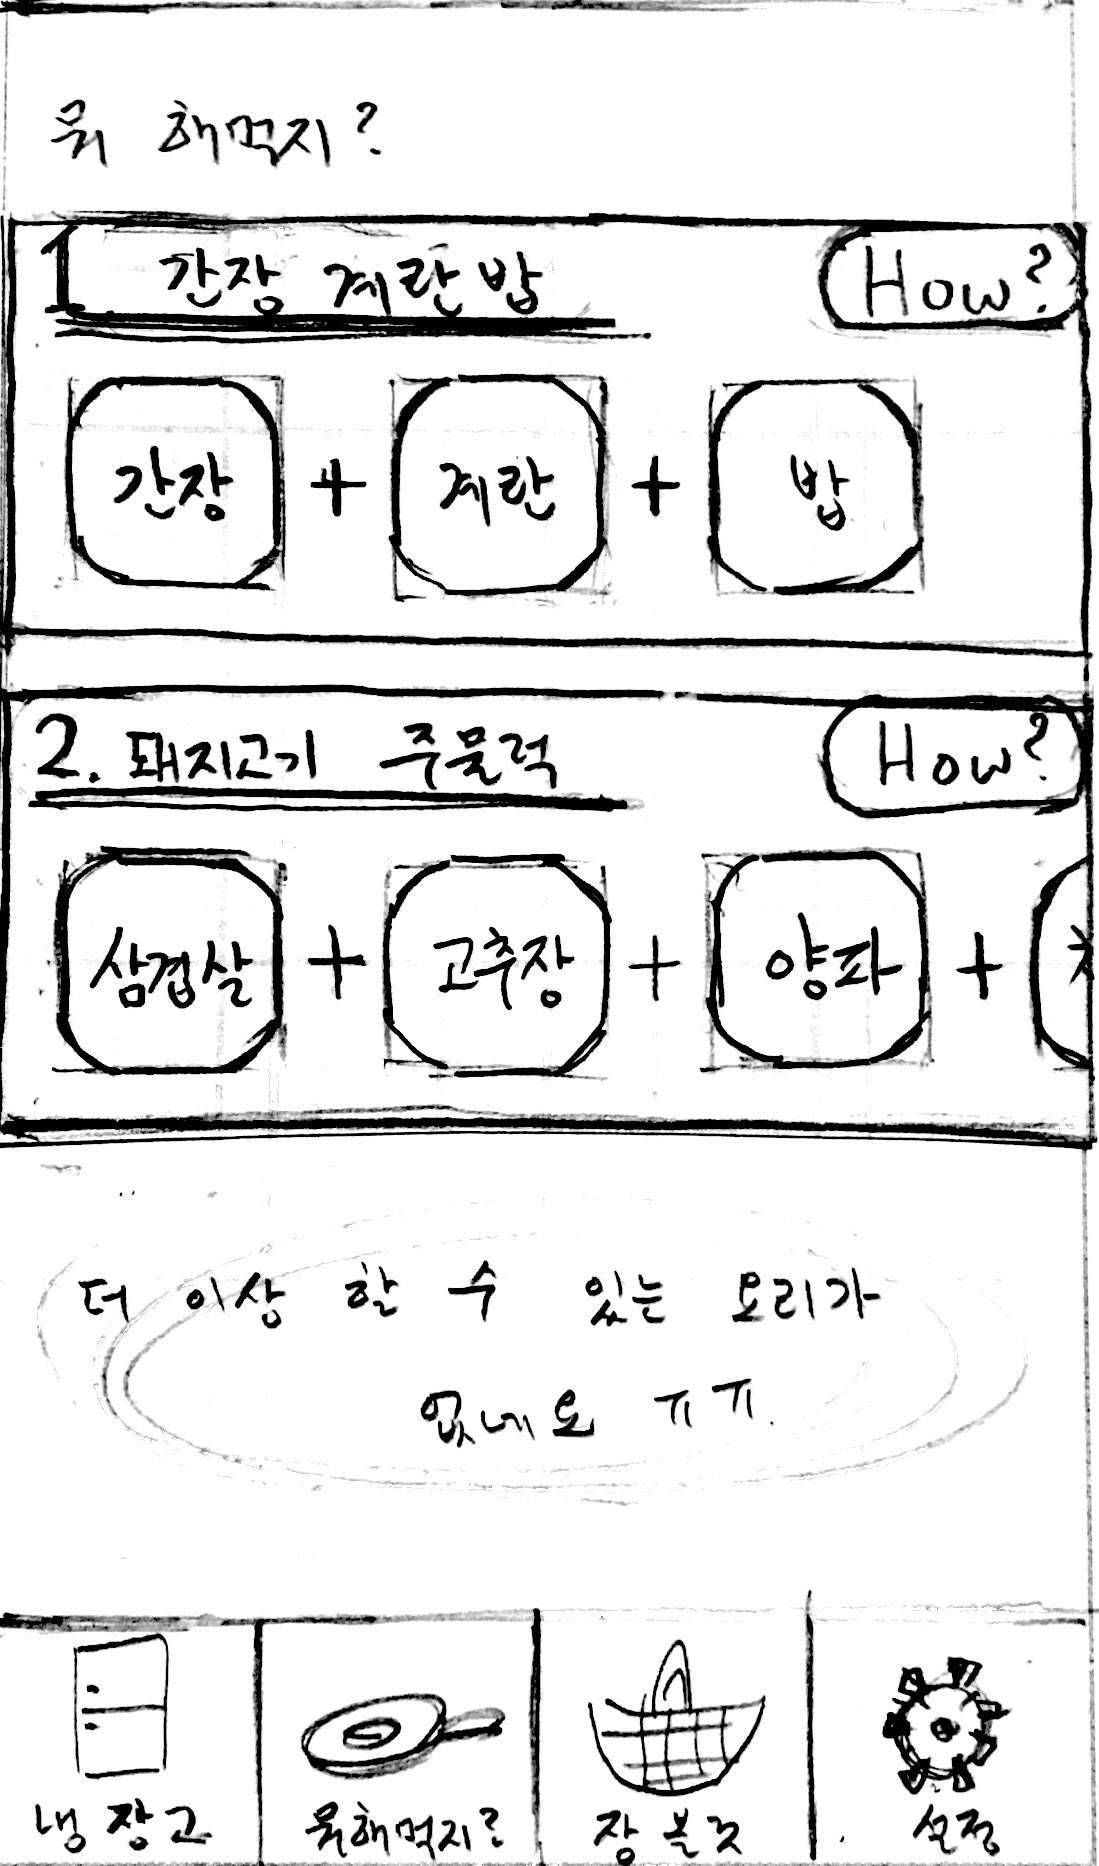 뭐 해먹지?
1 간장 계란 밥 How?
간장 + 계란 + 밥
2. 돼지고기 주물럭 How?
삼겹살 + 고추장 + 양파 +
더 이상 할 수 있는 요리가
없네요 ㅠㅠ.
냉장고 뭐해먹지? 장 볼 것 설정